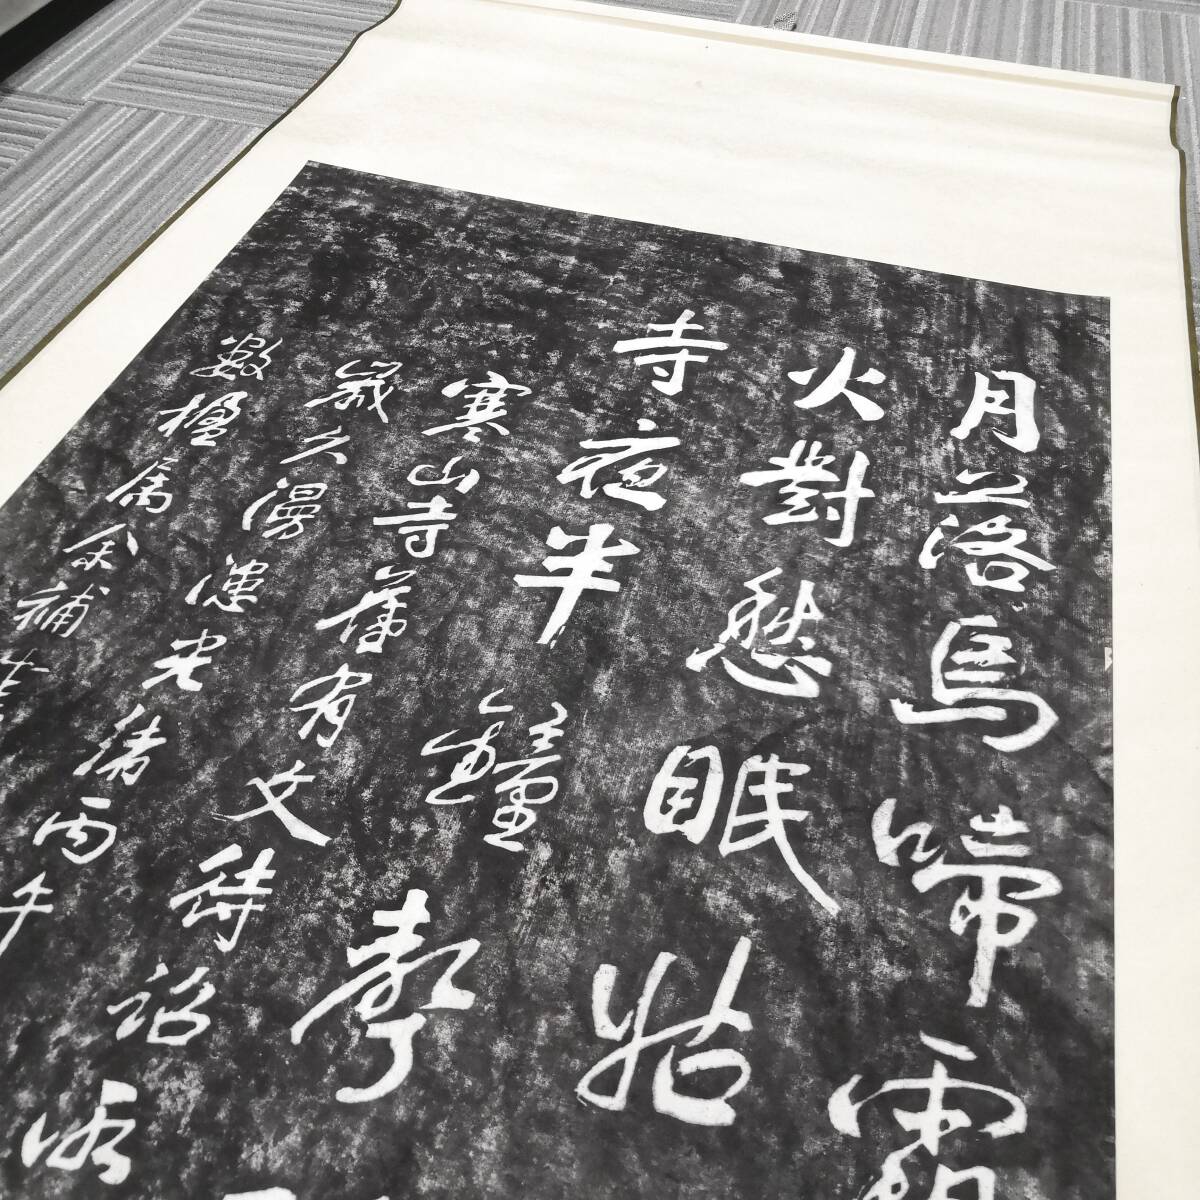 月落烏啼霜
火對愁眠姑
寺夜半鐘聲
寒山寺舊有文待詔所
歲久漫漶光緒丙午
數楹屬余補書